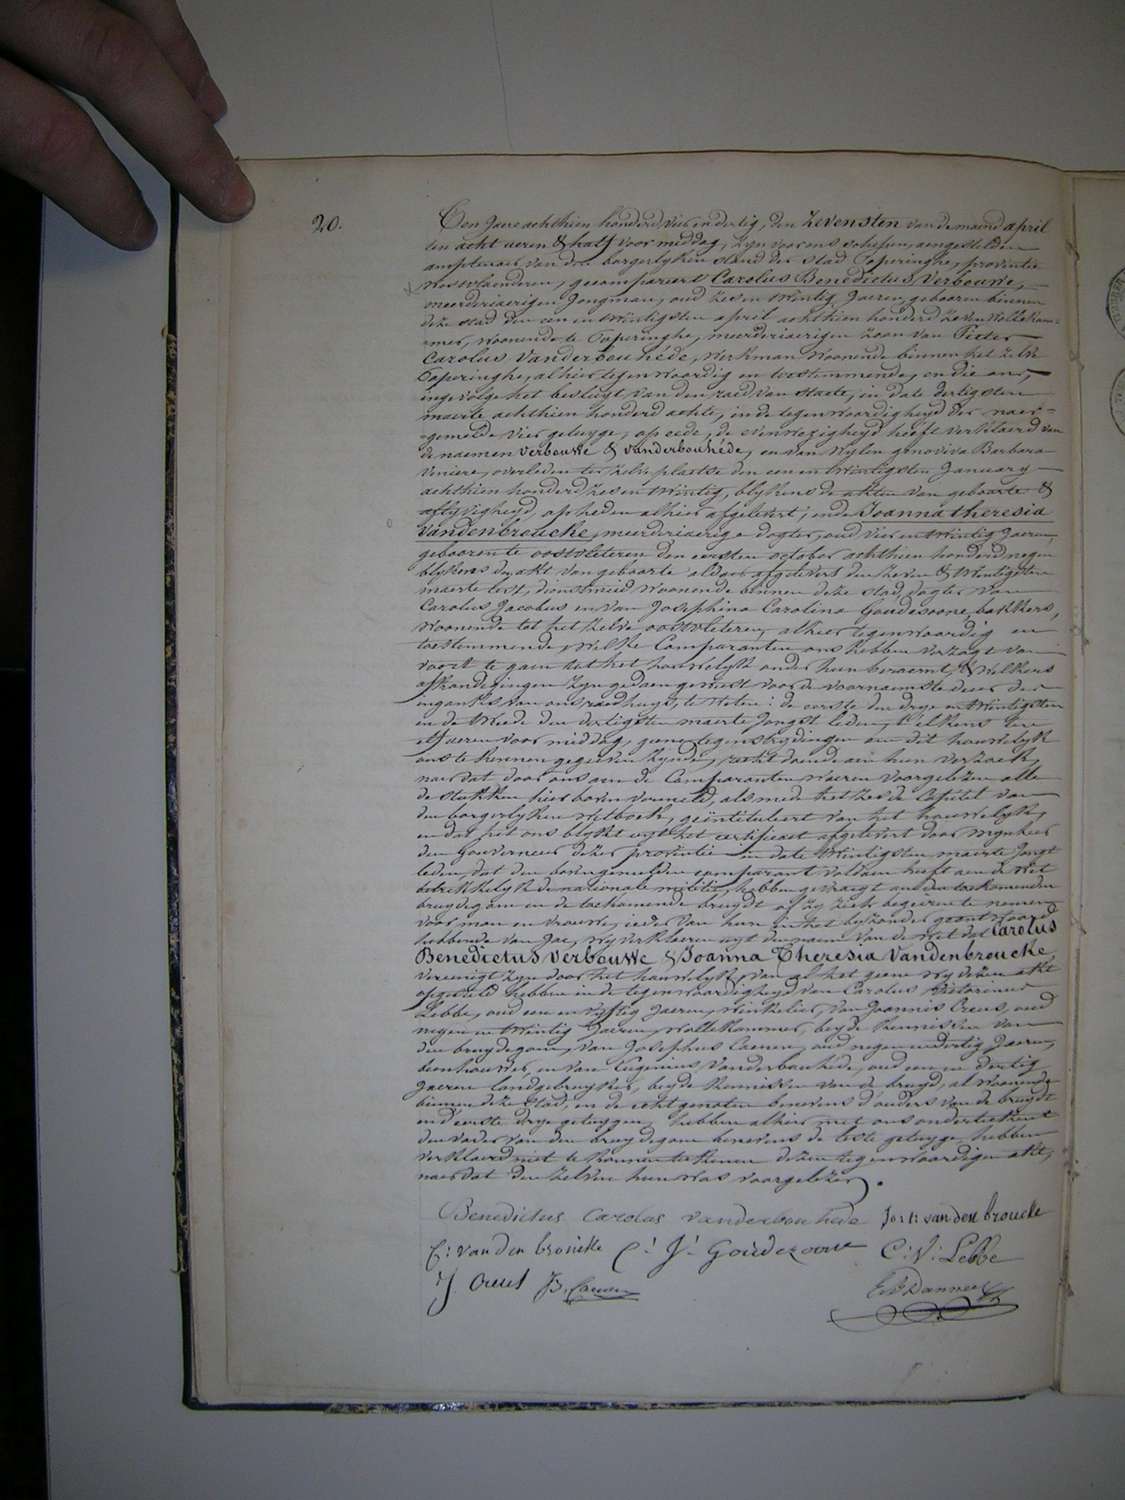 20.
Den Jaere achthien honderd vier en dertig, den zevensten van de maend april
ten acht ueren & half voor middag, zyn voor ons schepen, aengestelden
amptenaer van den borgerlyken stand der stad Poperinghe, provintie
Westvlaenderen, gecompareert Carolus Benedictus Verbouwe,
meerderiaerigen Jongman, oud zes en twintig Jaeren, gebooren binnen
deze stad den een en twintigsten april achthien honderd zeven wollekam-
mer, woonende te Poperinghe, meerderiaerigen zoon van Pieter
Carolus Vanderbouhéde, werkman woonende binnen het zelve
Poperinghe, alhier tegenwoordig en toestemmende, en die ons,
ingevolge het besluyt van den raed van staete, in date dertigsten
maerte achthien honderd achte, in de tegenwoordigheyd der naer-
gemelde vier getuyge, op eede, de eenwezigheyd heeft verklaerd van
de naemen verbouwe & vanderbouhéde, en van wylen genoviva Barbara
Veniere, overleden ter zelve plaetse den een en twintigsten January
achthien honderd zes en twintig, blykens de akten van geboorte &
aflyvigheyd, op heden alhier afgelevert; ende Joanna theresia
Vandenbroucke, meerderiaerige dogter, oud vier en twintig Jaeren,
gebooren te oostvleteren den eersten october achthien honderd negen
blykens den akt van geboorte aldaer afgelevert den zeven & twintigsten
maerte lest, dienstmeid woonende binnen deze stad, dogter van
Carolus Jacobus en van Josephina Carolina Goudesoone, bakkers,
woonende tot het zelve oostvleteren, alhier tegenwoordig en
toestemmende, welke Comparanten ons hebben verzogt van
voort te gaen tot het houwelyk onder hun beraemt, & welkers
afkondigingen zyn gedaen geweest voor de voornaemste deur der
ingank van ons raedhuys, te weten: de eerste den drye en twintigsten
en de tweede den dertigsten maerte Jongst leden, telkens ten
elf ueren voor middag, geene tegenstrydingen aen dit houwelyk
ons te kennen gegeven zynde, recht doende aen hun verzoek,
naer dat door ons aen de Comparanten waeren voorgelezen alle
de stukken hier boven vermeld, als mede het zesde Capitel van
den borgerlyken wetboek, geïntituleert van het houwelyk,
en dat het ons blykt uyt het certificaet afgelevert door mynheer
den Gouverneur dezer provintie in date twintigsten maerte Jongst
leden, dat den bovengemelden comparant voldaen heeft aen de wet
betrekkelyk de nationale militie, hebben gevraegt aen den toekomenden
bruydegom en de toekomende bruydt of zy zich begeeren te nemen
voor man en vrouwe, ieder van hun in het byzonder geantwoord
hebbende van Jae, wy verklaeren uyt den naem van de wet dat Carolus
Benedictus Verbouwe & Joanna Theresia Vandenbroucke,
vereenigt zyn door het houwelyk, van al het geene wy dezen akt
opgesteld hebben in de tegenwoordigheyd van Carolus Victorinus
Lebbe, oud een en vyftig Jaeren, winkelier, van Joannis Creus, oud
negen en twintig Jaeren, wollekammer, beyde kennissen van
den bruydegom, van Josephus Caenen, oud negen en dertig Jaeren,
beenhouwer, en van Eugenius Vanderbouhede, oud een en dertig
Jaeren landgebruyker, beyde kennissen van de bruyd, al woonende
binnen deze stad, en de echtgenoten benevens d'ouders van de bruydt
en d'eerste drye getuygen hebben alhier met ons onderteekent
den vader van den bruydegom benevens de leste getuyge hebben
verklaerd niet te konnen teekenen dezen tegenwoordigen akt,
naer dat den zelven hun was voorgelezen.
Benedictus Carolus vanderbouhede Jos t: vanden broucke
C: van den broucke C: J: Goudezoone C: V: Lebbe
J Creus J. Caenen